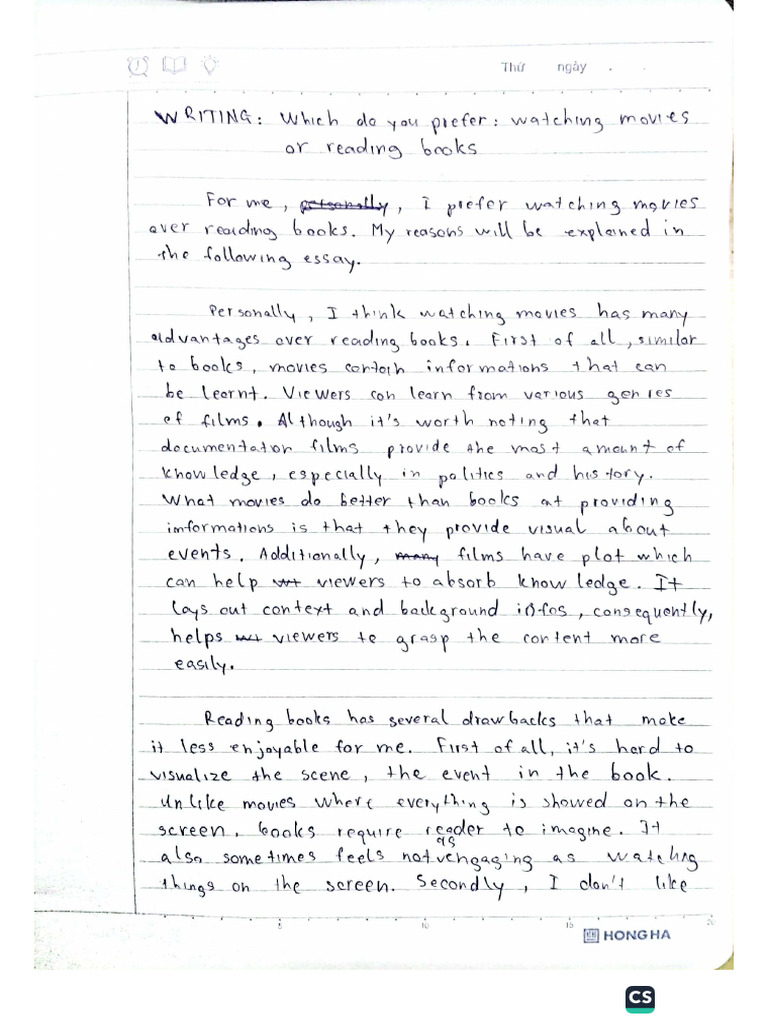 Thứ ngày . .
WRITING: Which do you prefer: watching movies
or reading books
For me, personally, I prefer watching movies
over reading books. My reasons will be explained in
the following essay.
Personally, I think watching movies has many
advantages over reading books. First of all, similar
to books, movies contain informations that can
be learnt. Viewers can learn from various genres
of films. Although it's worth noting that
documentator films provide the most amount of
knowledge, especially in politics and history.
What movies do better than books at providing
informations is that they provide visual about
events. Additionally, many films have plot which
can help viewers to absorb knowledge. It
lays out context and background infos, consequently,
helps viewers to grasp the content more
easily.
Reading books has several drawbacks that make
it less enjoyable for me. First of all, it's hard to
visualize the scene, the event in the book.
Unlike movies where everything is showed on the
screen, books require reader to imagine. It
also sometimes feels not as engaging as watching
things on the screen. Secondly, I don't like
5 10 15 20
HONG HA
CS